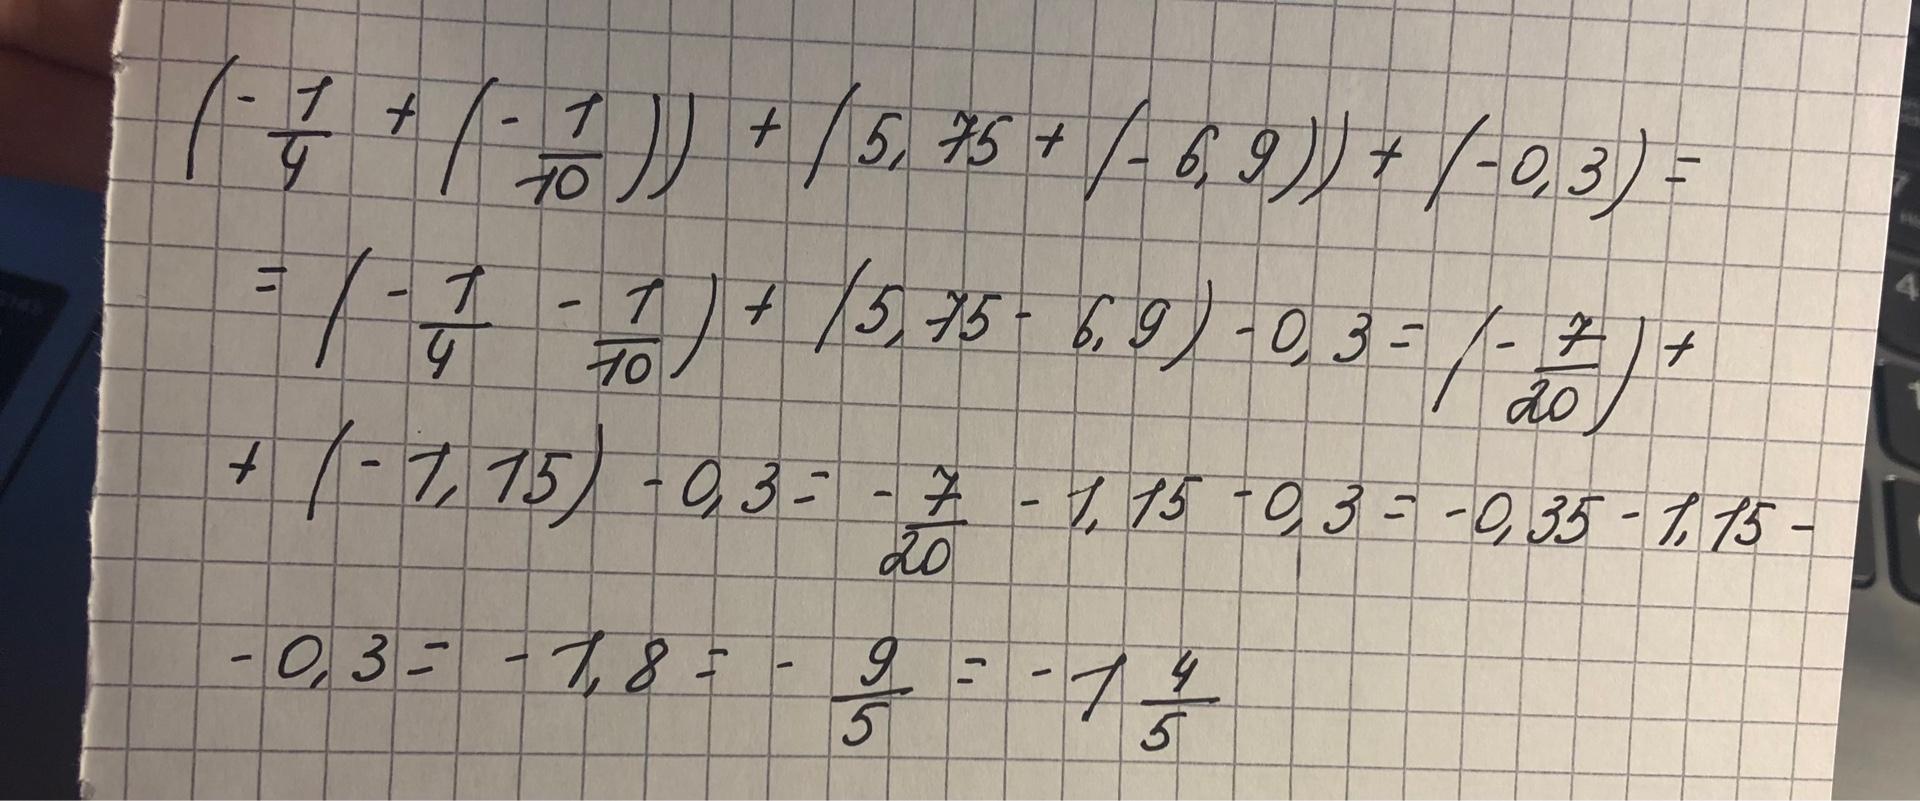 (-1/4 + (-1/10)) + (5,75 + (-6,9)) + (-0,3) =
= (-1/4 - 1/10) + (5,75 - 6,9) - 0,3 = (-7/20) +
+ (-1,15) - 0,3 = -7/20 - 1,15 - 0,3 = -0,35 - 1,15 -
- 0,3 = -1,8 = -9/5 = -1 4/5